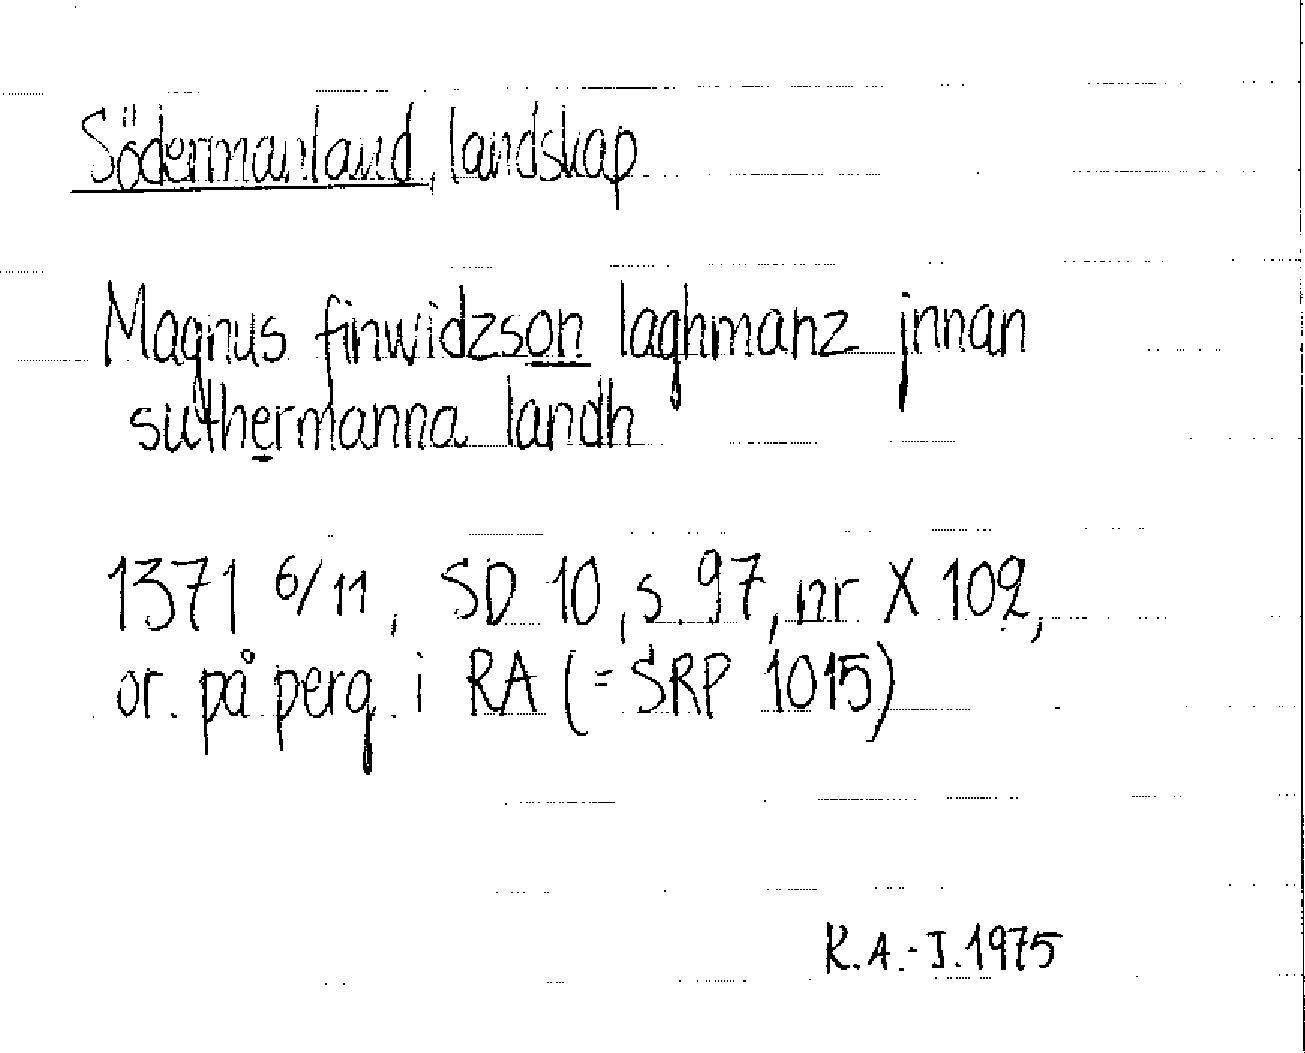 Södermanland, landskap
Magnus finwidzson laghmanz jnnan
suthermanna landh
1371 6/11, SD 10, s. 97, nr X 102,
or. på perg. i RA (= SRP 1015)
R.A.-I. 1975